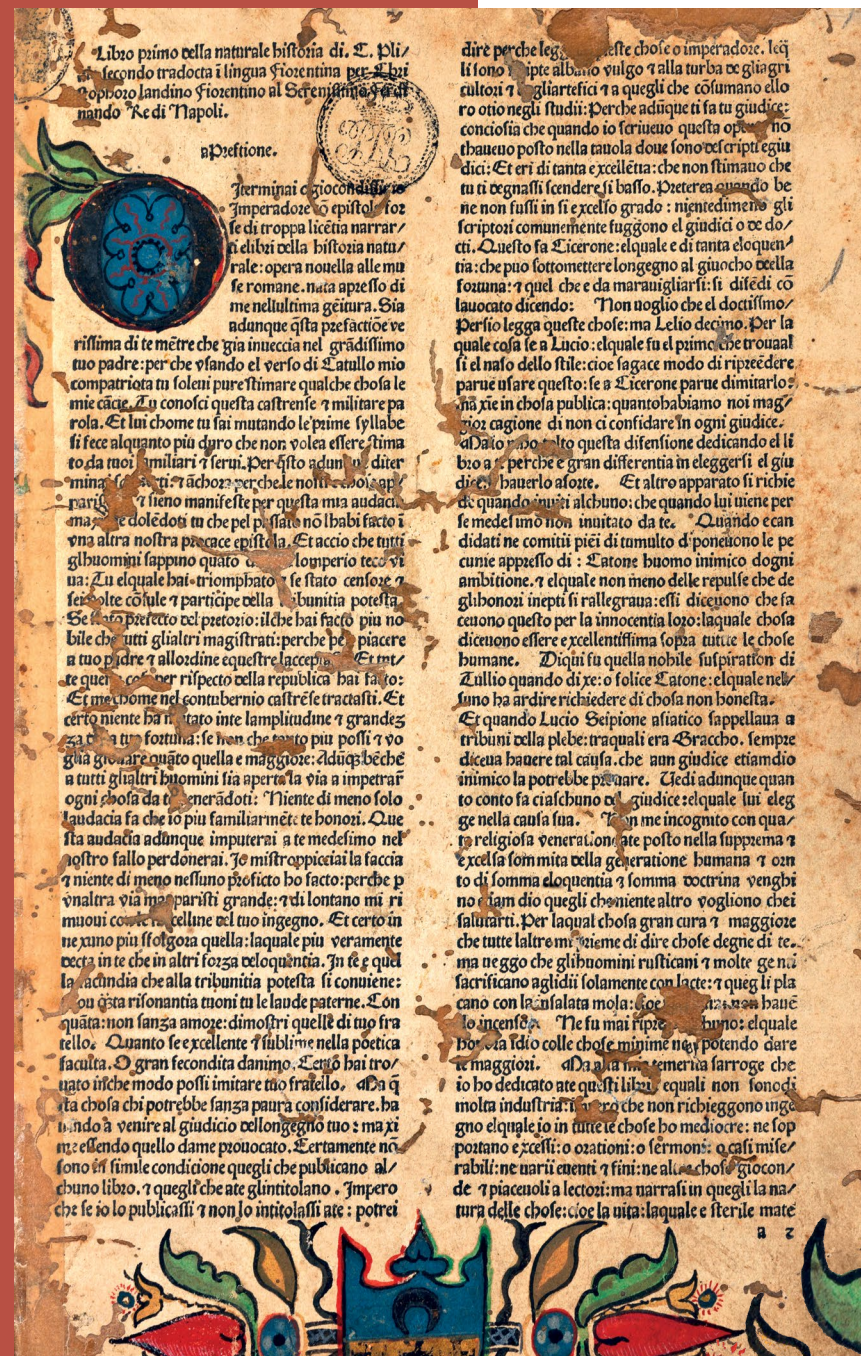 Libro primo della naturale historia di. C. Pli/
secondo tradocta ī lingua Fiorentina per Chri
stophoro landino Fiorentino al Serenissimo
nando Re di Napoli.
aPreftione.
Iterminai o giocondissimo
Imperadore cō epistola for
se di troppa licētia narrar/
ti elibri della historia natu/
rale: opera nouella alle mu
se romane. nata apresso di
me nellultima gēitura. Sia
adunque q̄sta prefactiōe ve
rissima di te mētre che gia inueccia nel grādissimo
tuo padre: per che vsando el verso di Catullo mio
compatriota tu soleui pure stimare qualche chosa le
mie cācie. Tu conosci questa castrense ⁊ militare pa
rola. Et lui chome tu sai mutando le prime syllabe
si fece alquanto piu duro che non volea essere stima
to da tuoi familiari ⁊ serui. Per q̄sto diter
ācora perche le
⁊ sieno manifeste per questa mia audaci
dolēdoti tu che pel passato nō lhabi facto ī
vna altra nostra procace epistola. Et accio che tutti
glhuomini sappino quāto lomperio teco vi
ua: Tu elquale hai triomphato ⁊ se stato censore ⁊
sei volte cōsule ⁊ participe della tribunitia potesta.
Se stato prefecto del pretorio: ilche hai facto piu no
bile che tutti glialtri magistrati: perche per piacere
a tuo padre ⁊ allordine equestre Et tut/
te per rispecto della republica hai facto:
Et me chome nel contubernio castrēse tractasti. Et
certo niente ha mutato in te lamplitudine ⁊ grandez
za della tua fortuna: se non che tanto piu possi ⁊ vo
glia giouare quāto quella e maggiore: Adūq; bēche
a tutti glialtri huomini sia aperta la via a impetrar̄
ogni chosa da te venerādoti: Niente di meno solo
laudacia fa che io piu familiarmēte te honori. Que
sta audacia adunque imputerai a te medesimo nel
nostro fallo perdonerai. Io mi stroppicciai la faccia
⁊ niente di meno nessuno proficto ho facto: perche p
vnaltra via mapparisti grande: ⁊ di lontano mi ri
muoui del tuo ingegno. Et certo in
nexuno piu sfolgora quella: laquale piu veramente
decta in te che in altri forza deloquentia. In te e quel
la facundia che alla tribunitia potesta si conuiene:
q̄ta risonantia tuoni tu le laude paterne. Con
quāta: non sanza amore: dimostri quelle di tuo fra
tello. Quanto se excellente ⁊ sublime nella poetica
faculta. O gran fecondita danimo. Certo hai tro/
uato in che modo possi imitare tuo fratello. Ma q̄
sta chosa chi potrebbe sanza paura considerare. ha
uendo à venire al giudicio dellongegno tuo: maxi
me essendo quello da me prouocato. Certamente nō
sono in simile condicione quegli che publicano al/
chuno libro. ⁊ quegli che ate glintitolano. Impero
che se io lo publicassi ⁊ non lo intitolassi ate: potrei
dire perche queste chose o imperadore. leq
li sono scripte al basso vulgo ⁊ alla turba de gliagri
cultori ⁊ degliartefici ⁊ a quegli che cōsumano ello
ro otio negli studii: Perche adūque ti fa tu giudice:
conciosia che quando io scriueuo questa opera no
thaueuo posto nella tauola doue sono descripti egiu
dici: Et eri di tanta excellētia: che non stimauo che
tu ti degnassi scendere si basso. Preterea quando be
ne non fussi in si excelso grado: nientedimeno gli
scriptori comunemente fuggono el giudici o de do/
cti. Questo fa Cicerone: elquale e di tanta eloquen/
tia: che puo sottomettere longegno al giuocho della
fortuna: ⁊ quel che e da marauigliarsi: si difēdi cō
lauocato dicendo: Non voglio che el doctissmo/
Persio legga queste chose: ma Lelio decimo. Per la
quale cosa se a Lucio: elquale fu el primo che trouaal
si el naso dello stile: cioe sagace modo di ripreēdere
parue usare questo: se a Cicerone parue dimitarlo:
ma xie in chosa publica: quanto habiamo noi mag/
gior cagione di non ci confidare in ogni giudice.
Ma io tolto questa difensione dedicando el li
bro a te perche e gran differentia in eleggersi el giu
dice hauerlo a sorte. Et altro apparato si richie
de quando inuiti alchuno: che quando lui uiene per
se medesimo non inuitato da te. Quando e can
didati ne comitii piēi di tumulto d'poneuono le pe
cunie appresso di: Catone huomo inimico dogni
ambitione. ⁊ elquale non meno delle repulse che de
glihonori inepti si rallegraua: essi diceuono che fa
ceuono questo per la innocentia loro: laquale chosa
diceuono essere excellentissima sopra tutte le chose
humane. Di qui fu quella nobile suspiration di
Tullio quando dixe: o felice Catone: elquale nel/
suno ha ardire richiedere di chosa non honesta.
Et quando Lucio Scipione asiatico sappellaua a
tribuni della plebe: tra quali era Graccho. sempre
diceua hauere tal causa. che aun giudice etiamdio
inimico la potrebbe prouare. Uedi adunque quan
to conto fa ciaschuno del giudice: elquale lui eleg
ge nella causa sua. Non me incognito con qua/
ta religiosa veneratione ate posto nella suppremа ⁊
excelsa sommita della generatione humana ⁊ orn
to di somma eloquentia ⁊ somma doctrina venghi
no etiam dio quegli che niente altro vogliono chei
salutarti. Per laqual chosa gran cura ⁊ maggiore
che tutte laltre mi prieme di dire chose degne di te.
ma ueggo che glihuomini rusticani ⁊ molte genti
sacrificano aglidii solamente con lacte: ⁊ quegli pla
cano con la insalata mola: cioe non hauē
lo incenso. Ne fu mai ripreso alchuno: elquale
honora idio colle chose minime non potendo dare
le maggiori. Ma alla mia temerita sarroge che
io ho dedicato ate questi libri equali non sono di
molta industria: che non richieggono inge
gno elquale io in tutte le chose ho mediocre: ne sop
portano excessi: o orationi: o sermoni: o casi mise/
rabili: ne uarii euenti ⁊ fini: ne altre chose giocon/
de ⁊ piaceuoli a lectori: ma narrasi in quegli la na/
tura delle chose: cioe la uita: laquale e sterile mate
a 2